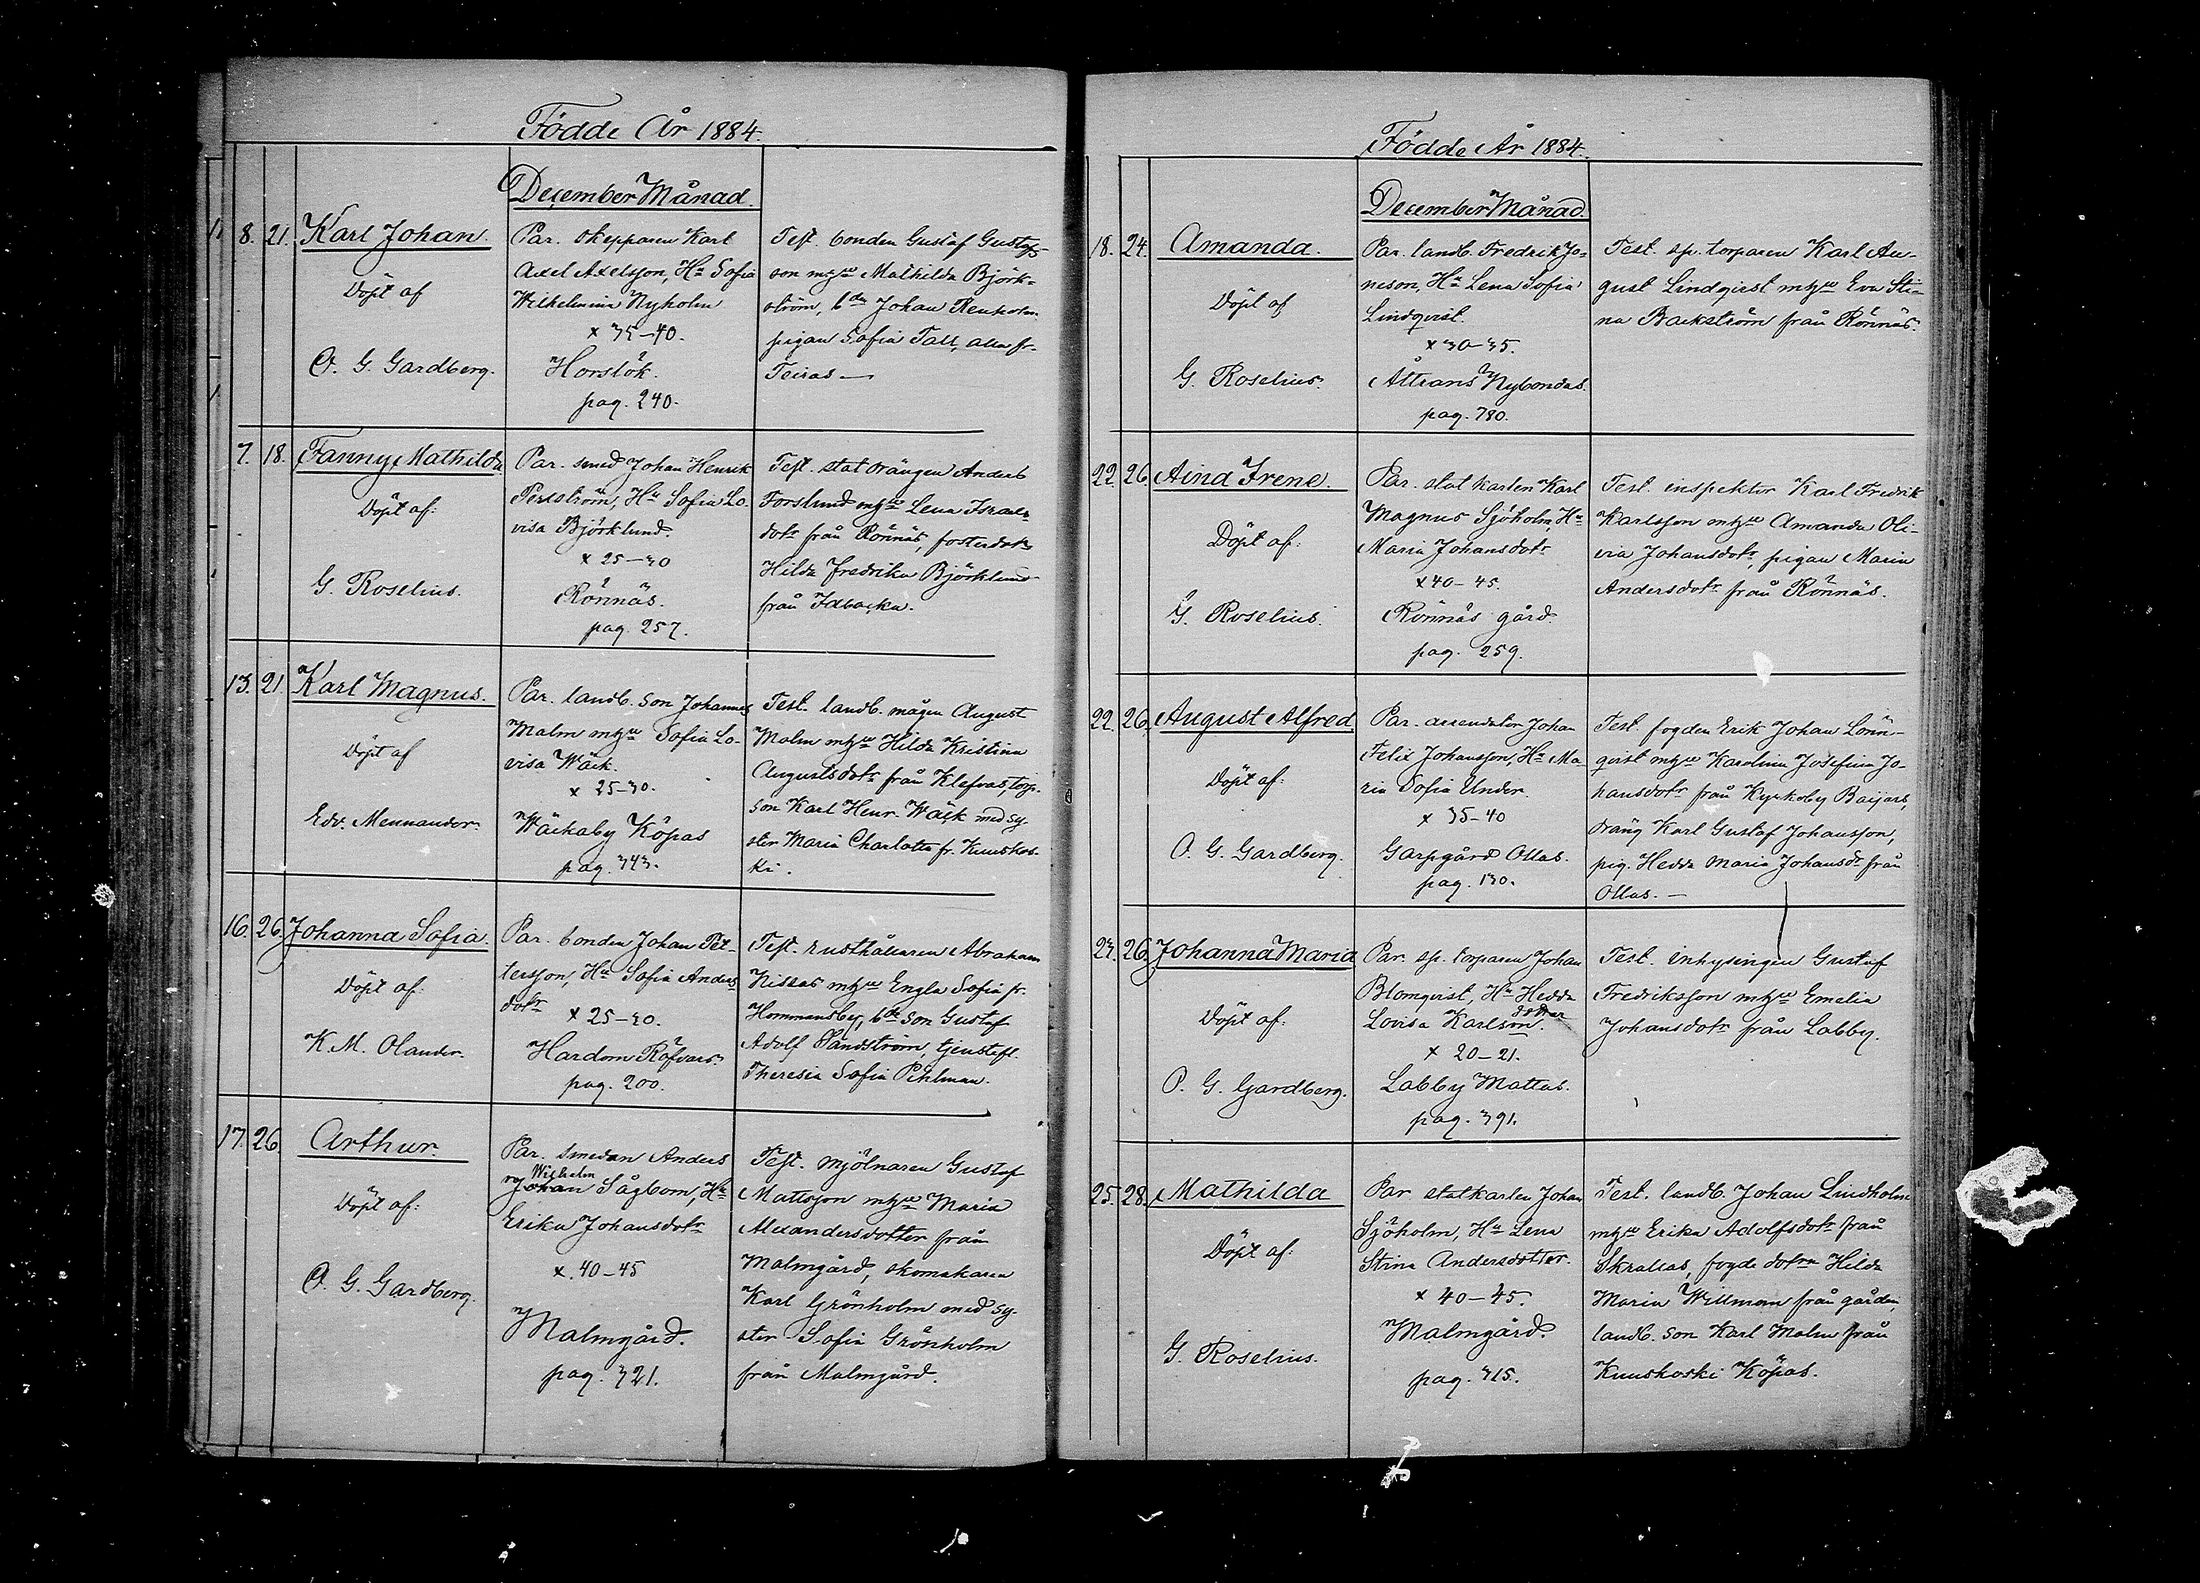 Födde År 1884.
December Månad.
8. 21. Karl Johan
Döpt af
O. G. Gardberg.
Par. skepparen Karl
Axel Axelsson, Hu Sofia
Wilhelmina Nyholm
x 35-40.
Horslök.
pag. 240.
Test. bonden Gustaf Gustafs-
son mhu Mathilda Björk-
ström, bdn Johan Renholm
pigan Sofia Tall, alla fr.
Teiras —
7. 18. Fanny Mathilda
Döpt af:
G. Roselius.
Par. smed Johan Henrik
Perström, Hu Sofia Lo-
visa Björklund.
x 25-30
Rönnäs.
pag. 257.
Test. statdrängen Anders
Forslund mhu Lena Israels-
dotr från Rönnäs, fosterdotr
Hilda Fredrika Björklund
från Idbacka.
13. 21. Karl Magnus.
Döpt af
Edv. Mennander.
Par. landb. son Johannes
Malm mhu Sofia Lo-
visa Wäck.
x 25-30.
Wäckaby Köpas
pag. 343.
Test. landb. mågen August
Malm mhu Hilda Kristina
Augustsdotr från Klefvas, torp.
son Karl Henr. Wäck med sy-
ster Maria Charlotta fr. Kuuskos-
ki.
16. 26. Johanna Sofia.
Döpt af:
K. M. Olander.
Par. bonden Johan Pet-
tersson, Hu Sofia Anders
dotr
x 25-30.
Hardom Räfvars.
pag. 200.
Test. rusthållaren Abraham
Nissas mhu Engla Sofia fr.
Hommansby, bde son Gustaf
Adolf Sandström, tjenstefl.
Theresia Sofia Pihlman.
17. 26. Arthur.
Döpt af:
O. G. Gardberg.
Par. smeden Anders
Wilhelm
Johan Sågbom, Hu
Erika Johansdotr
x. 40-45
Malmgård.
pag. 321.
Test. mjölnaren Gustaf
Mattsson mhu Maria
Alexandersdotter från
Malmgård, skomakaren
Karl Grönholm med sy-
ster Sofia Grönholm
från Malmgård.
Födde År 1884.
December Månad.
18. 24. Amanda.
Döpt af
G. Roselius.
Par. landb. Fredrik Jo-
neson, Hu Lena Sofia
Lindqvist.
x 30-35.
Åttrans Nybondas.
pag. 780.
Test. sp. torparen Karl Au-
gust Lindqvist mhu Eva Sti-
na Backström från Rönnäs.
22. 26. Aina Irene.
Döpt af:
G. Roselius.
Par. statkarlen Karl
Magnus Sjöholm Hu
Maria Johansdotr
x 40-45.
Rönnäs gård.
pag. 259.
Test. inspektor Karl Fredrik
Karlsson mhu Amanda Oli-
via Johansdotr, pigan Maria
Andersdotr från Rönnäs.
22. 26. August Alfred
Döpt af:
O. G. Gardberg.
Par. arrendator Johan
Felix Johansson, Hu Ma-
ria Sofia Under.
x 35-40
Garpgård Ollas.
pag. 130.
Test. fogden Erik Johan Lönn-
qvist mhu Karolina Josefina Jo-
hansdotr från Kyrkoby Baijars
dräng Karl Gustaf Johansson,
pig. Hedda Maria Johansdr från
Ollas. —
23. 26. Johanna Maria
Döpt af:
O. G. Gardberg.
Par. sp. torparen Johan
Blomqvist, Hu Hedda
dotter
Lovisa Karlson.
x 20-21.
Labby Mattas.
pag. 391.
Test. inhysingen Gustaf
Fredriksson mhu Emelia
Johansdotr från Labby.
25. 28. Mathilda
Döpt af:
G. Roselius.
Par. statkarlen Johan
Sjöholm, Hu Lena
Stina Andersdotter.
x 40-45.
Malmgård.
pag. 315.
Test. landb. Johan Lindholm
mhu Erika Adolfsdotr från
Skrallas, fogde dotrn Hilda
Maria Willman från gården,
landb. son Karl Malm från
Kuuskoski Köpas.